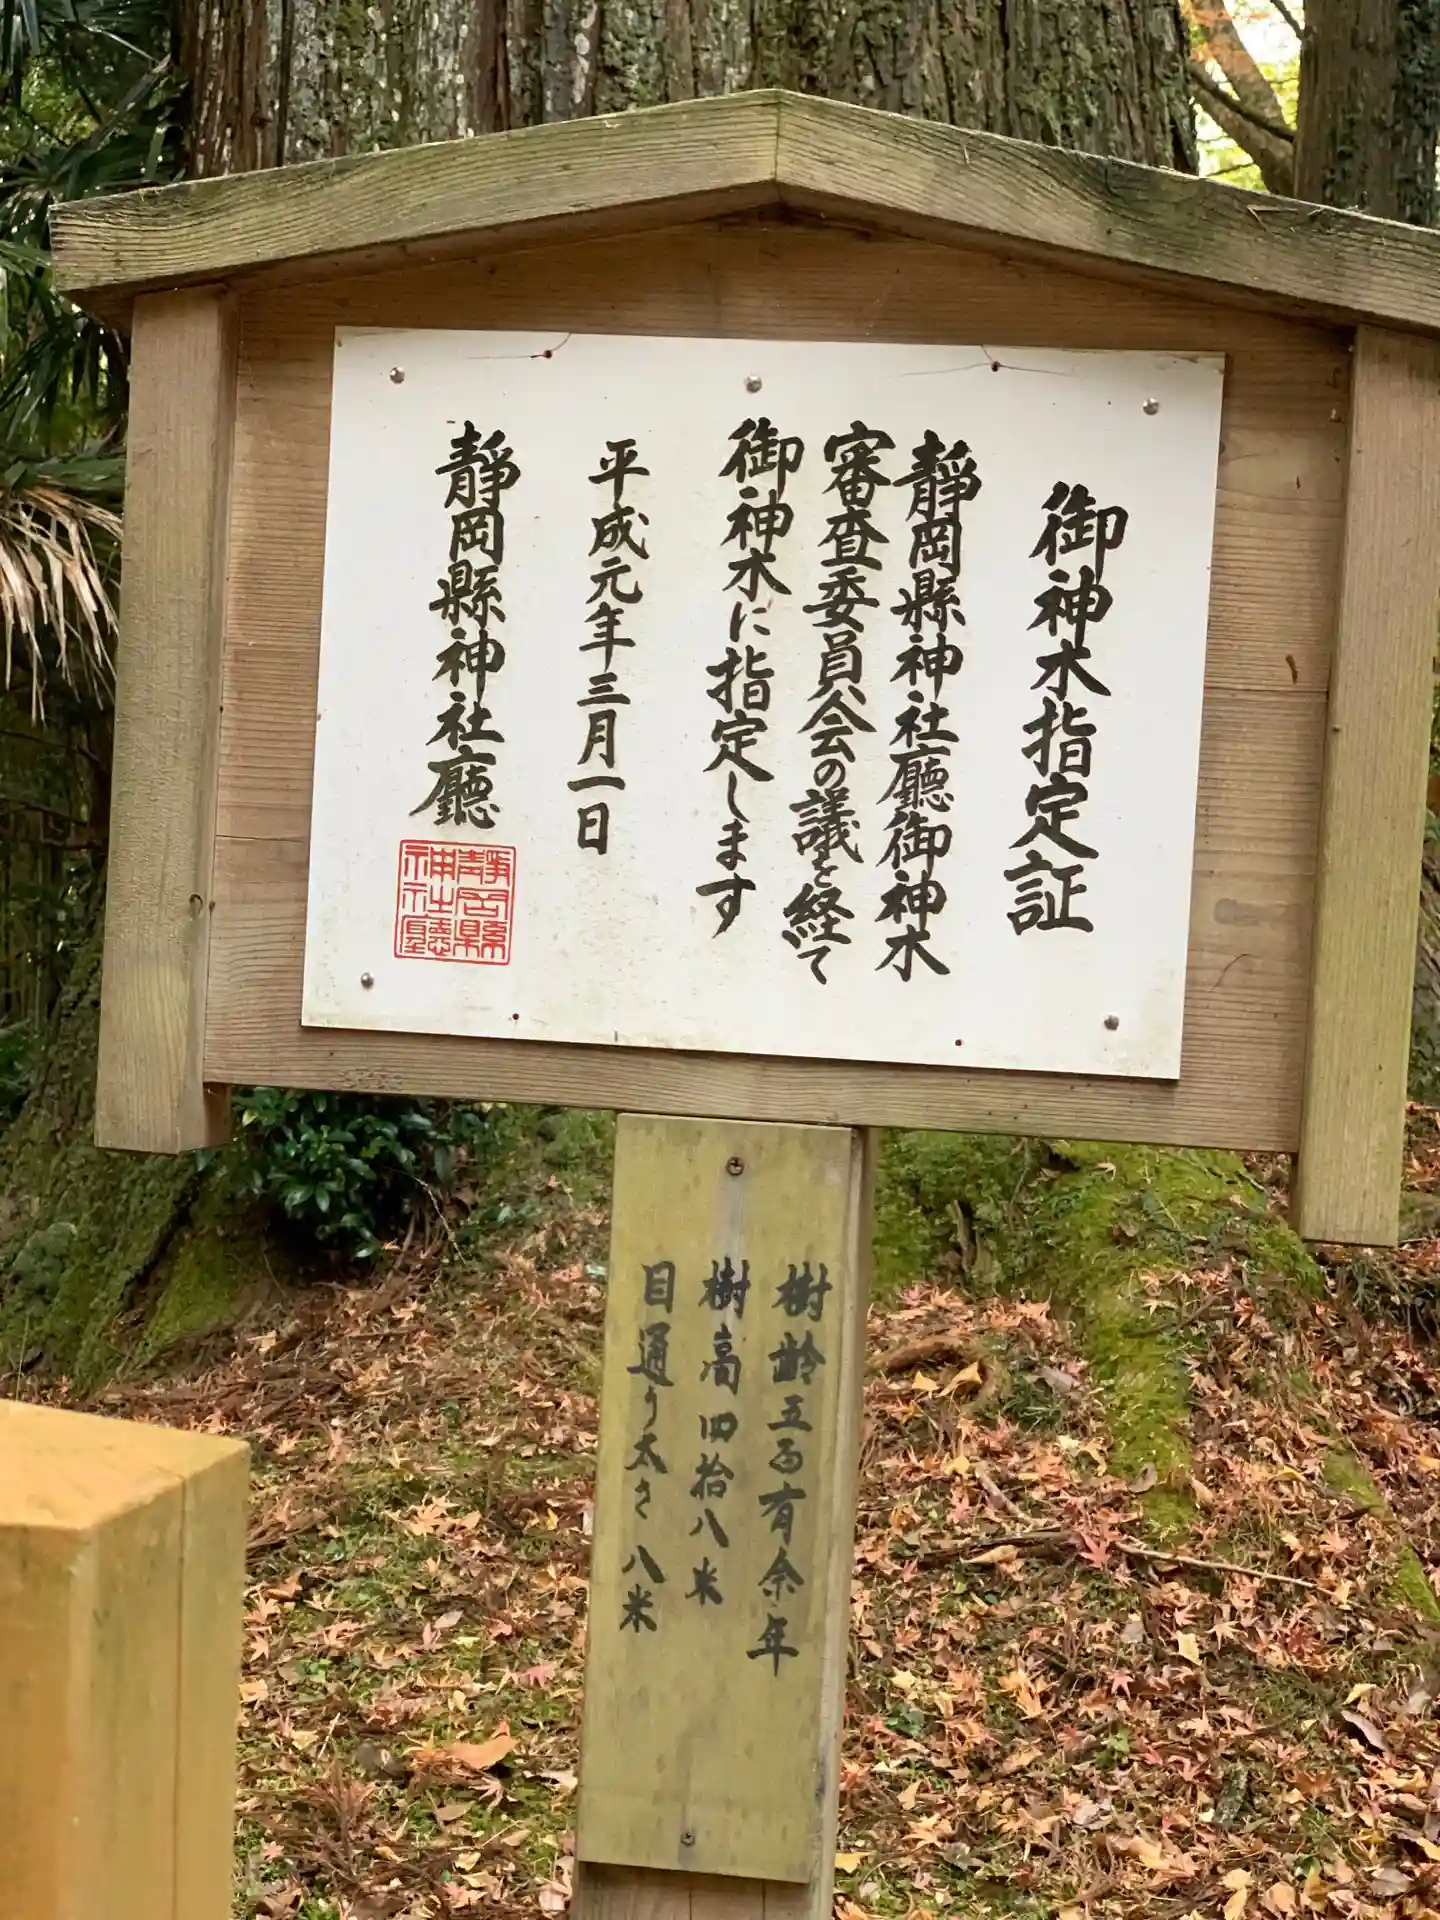 御神木指定証
靜岡縣神社廳御神木
審査委員会の議を経て
御神木に指定します
平成元年三月一日
靜岡縣神社廳
靜岡縣神社廳
樹齢五百有余年
樹高四拾八米
目通り太さ八米